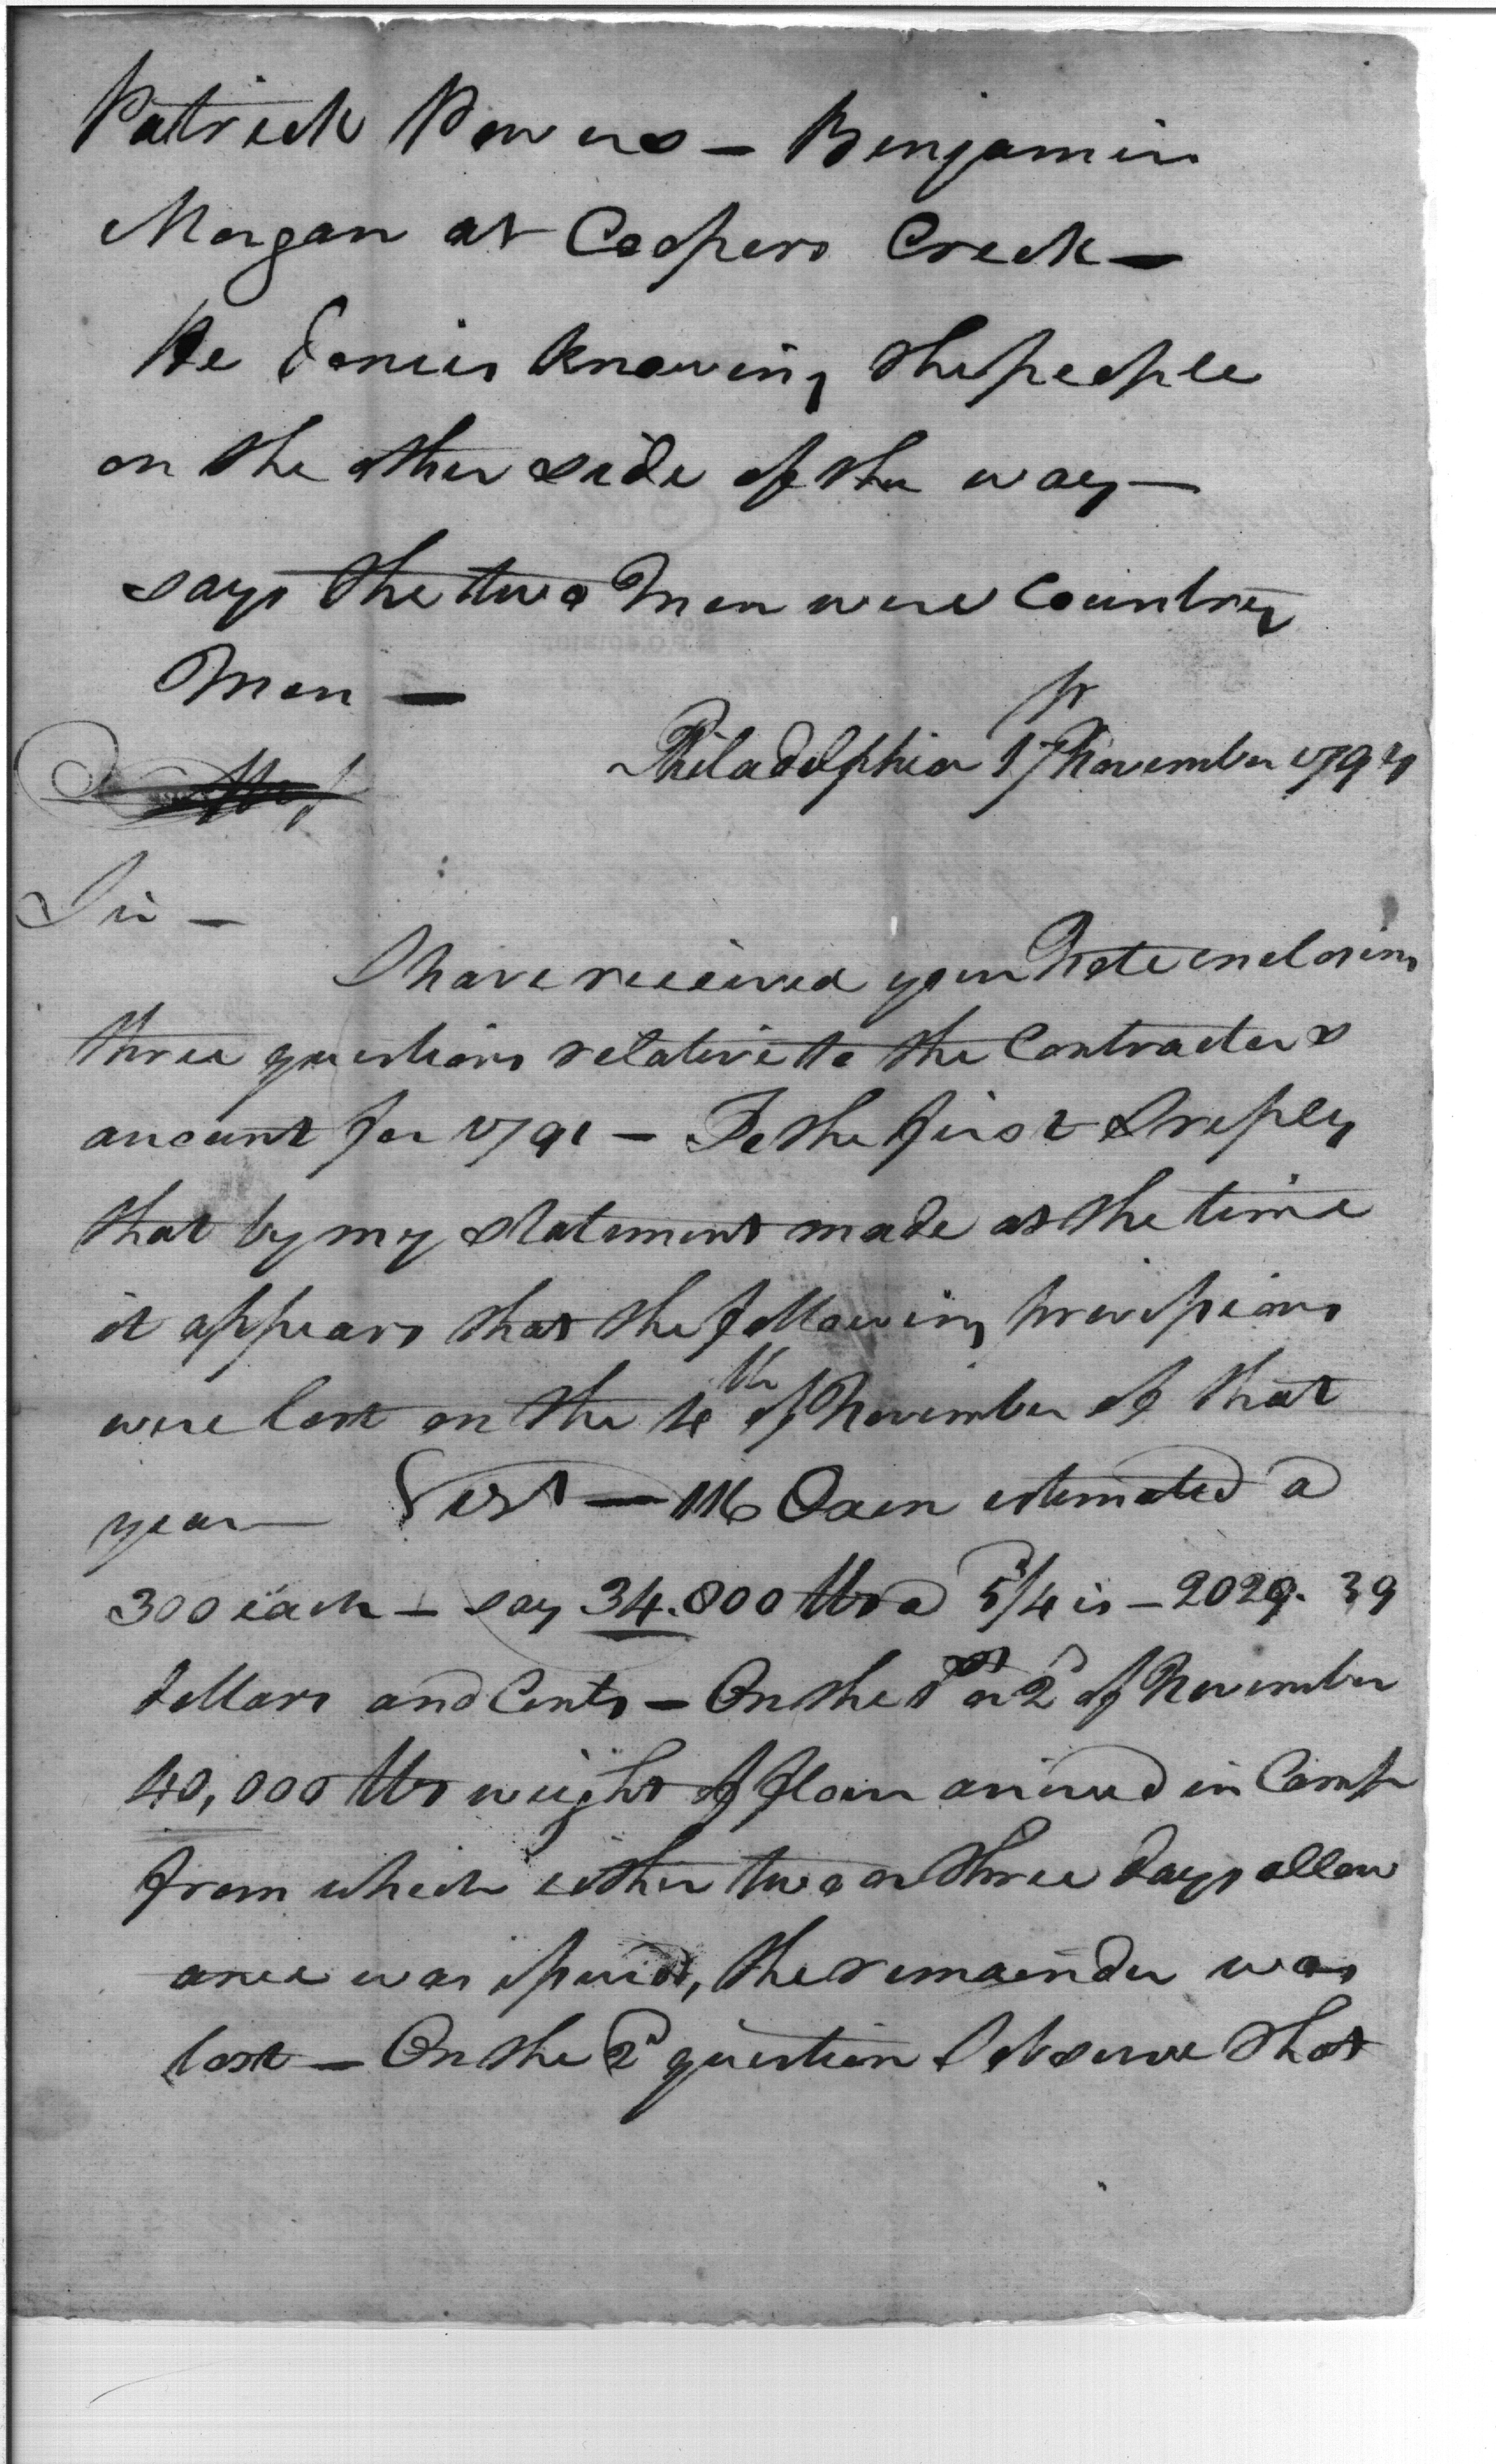 Patrick Powers – Benjamin
Morgan at Coopers Creek –
He denies knowing the people
on the other side of the way –
says the two Men were Country
Men –
Philadelphia 17 November 1794
Sir –
I have received your Note enclosing
three questions relative to the Contractors
account for 1791 – To the first I reply
that by my statement made at the time
it appears that the following provisions
were lost on the 4th of November of that
year – First – 116 Oxen estimated a
300 each – say 34.800 lbs a 5¾ is – 2029. 39
dollars and Cents – On the 1st or 2d of November
40,000 lbs weight of flour arrived in Camp
from which either two or three days allow
ance was issued, the remainder was
lost – On the 2d question I observe that